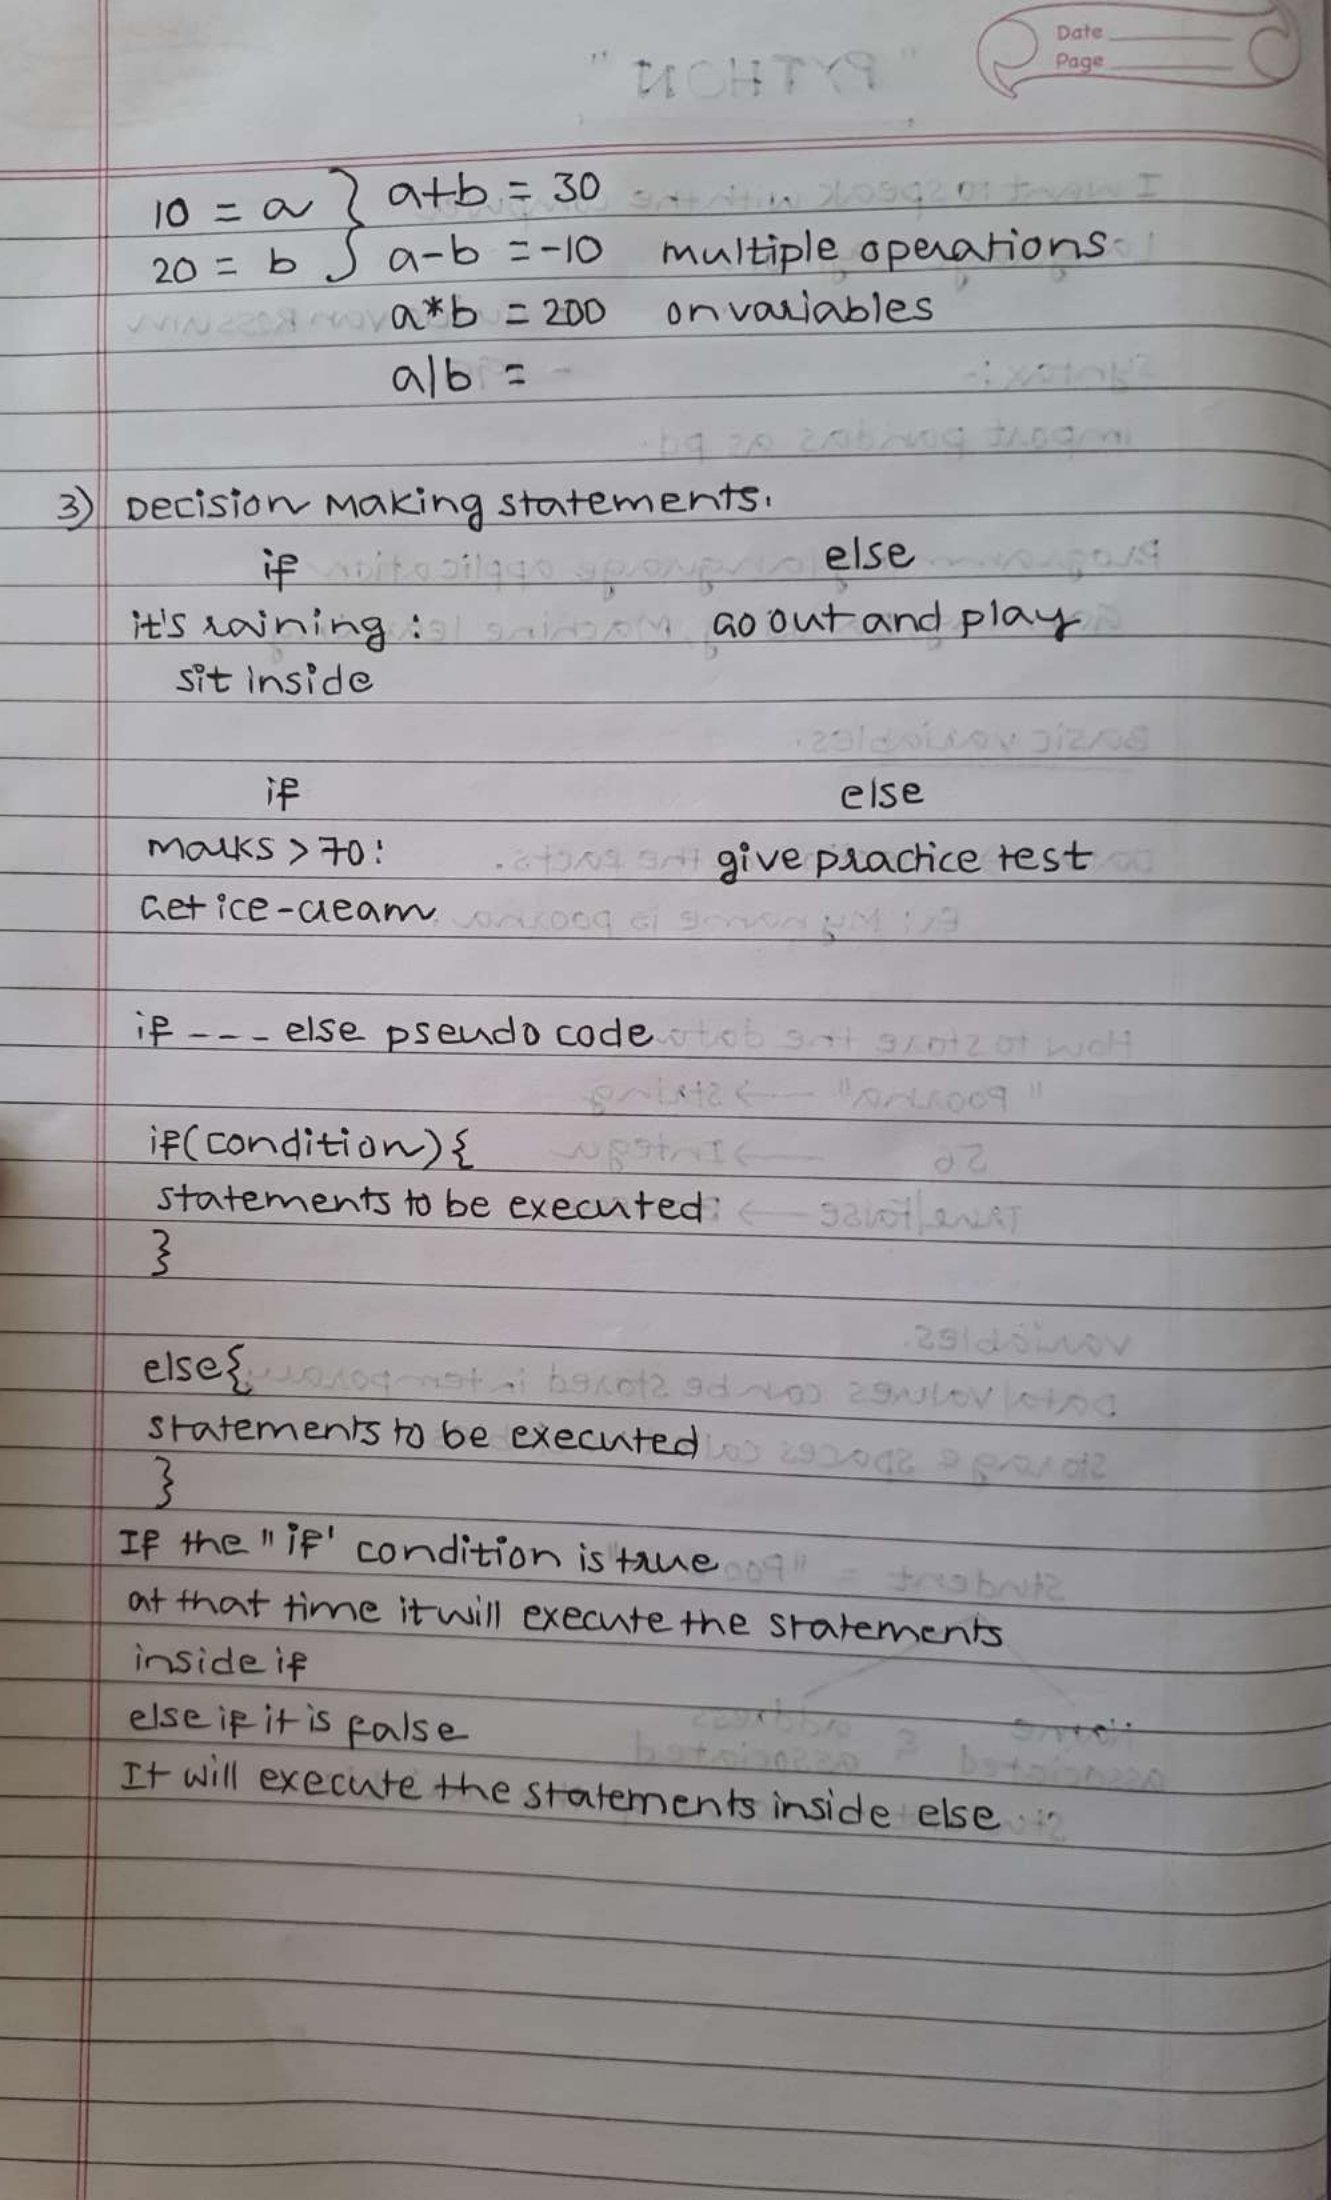 Date
Page
10 = a } a+b = 30
20 = b } a-b = -10 multiple operations
a*b = 200 on variables
a/b =
3) Decision Making statements.
if else
it's raining : Go out and play
sit inside
if else
marks > 70 : give practice test
Get ice-cream
if --- else pseudo code
if(condition){
statements to be executed
}
else{
statements to be executed
}
If the "if' condition is true
at that time it will execute the statements
inside if
else if it is false
It will execute the statements inside else